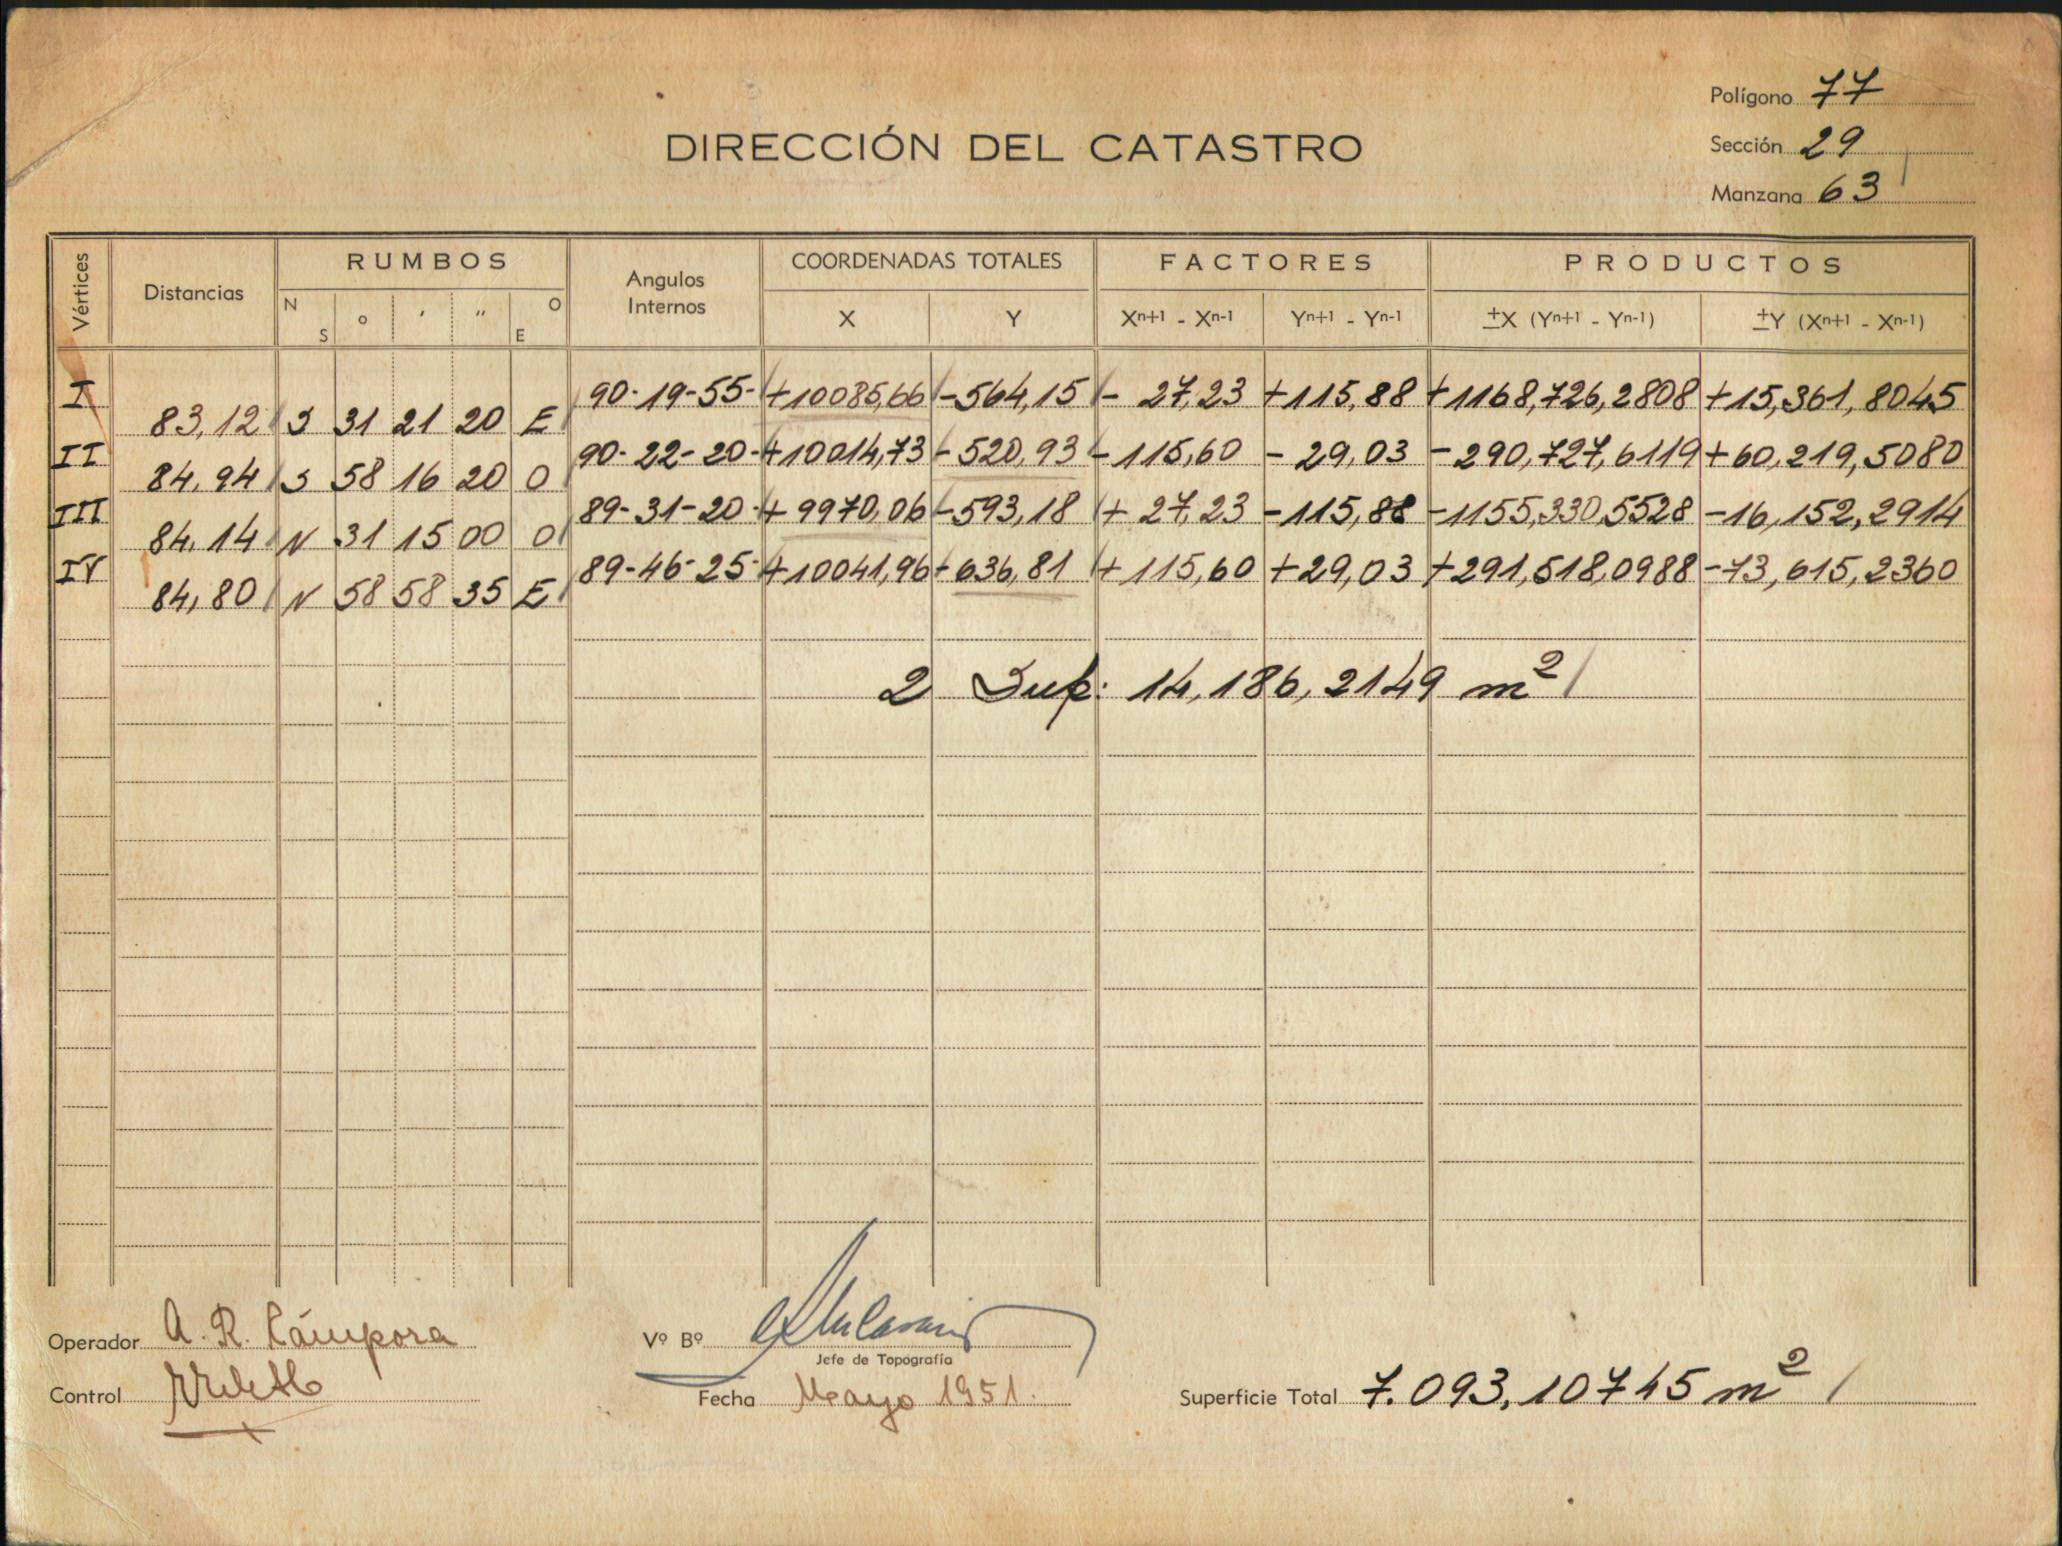 Polígono 77
DIRECCIÓN DEL CATASTRO
Sección 29
Manzana 63
Vértices Distancias RUMBOS Angulos Internos COORDENADAS TOTALES FACTORES PRODUCTOS
N S o ' " O E X Y Xn+1 - Xn-1 Yn+1 - Yn-1 ±X (Yn+1 - Yn-1) ±Y (Xn+1 - Xn-1)
I 90-19-55- +10085,66 -564,15 - 27,23 +115,88 +1168,726,2808 +15,361,8045
83,12 S 31 21 20 E
II 90-22-20- +10014,73 -520,93 -115,60 - 29,03 -290,727,6119 +60,219,5080
84,94 S 58 16 20 O
III 89-31-20- + 9970,06 -593,18 + 27,23 -115,88 -1155,330,5528 -16,152,2914
84,14 N 31 15 00 O
IV 89-46-25- +10041,96 - 636,81 + 115,60 +29,03 +291,518,0988 -73,615,2360
84,80 N 58 58 35 E
2 Sup: 14,186,2149 m²
Operador A. R. Cámpora
Vº Bº
Jefe de Topografía
Control
Fecha Mayo 1951.
Superficie Total 7.093,10745 m²